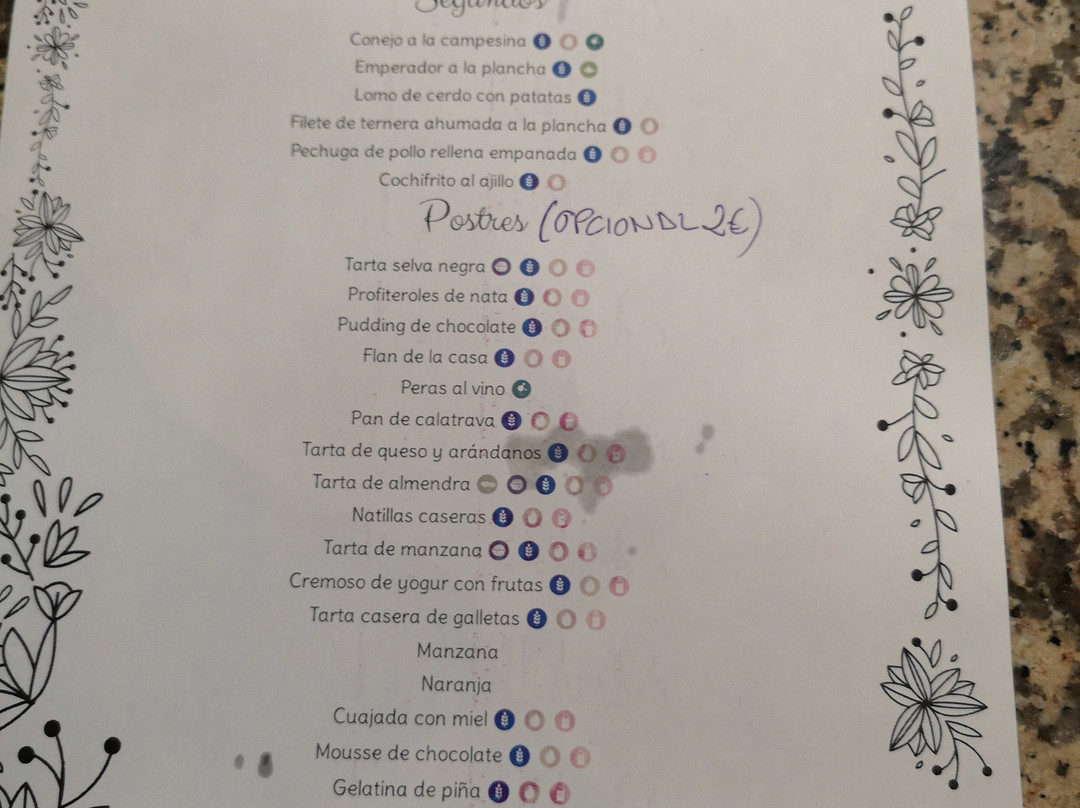 Segundos
Conejo a la campesina
Emperador a la plancha
Lomo de cerdo con patatas
Filete de ternera ahumada a la plancha
Pechuga de pollo rellena empanada
Cochifrito al ajillo
Postres (OPCIONAL 2€)
Tarta selva negra
Profiteroles de nata
Pudding de chocolate
Flan de la casa
Peras al vino
Pan de calatrava
Tarta de queso y arándanos
Tarta de almendra
Natillas caseras
Tarta de manzana
Cremoso de yogur con frutas
Tarta casera de galletas
Manzana
Naranja
Cuajada con miel
Mousse de chocolate
Gelatina de piña